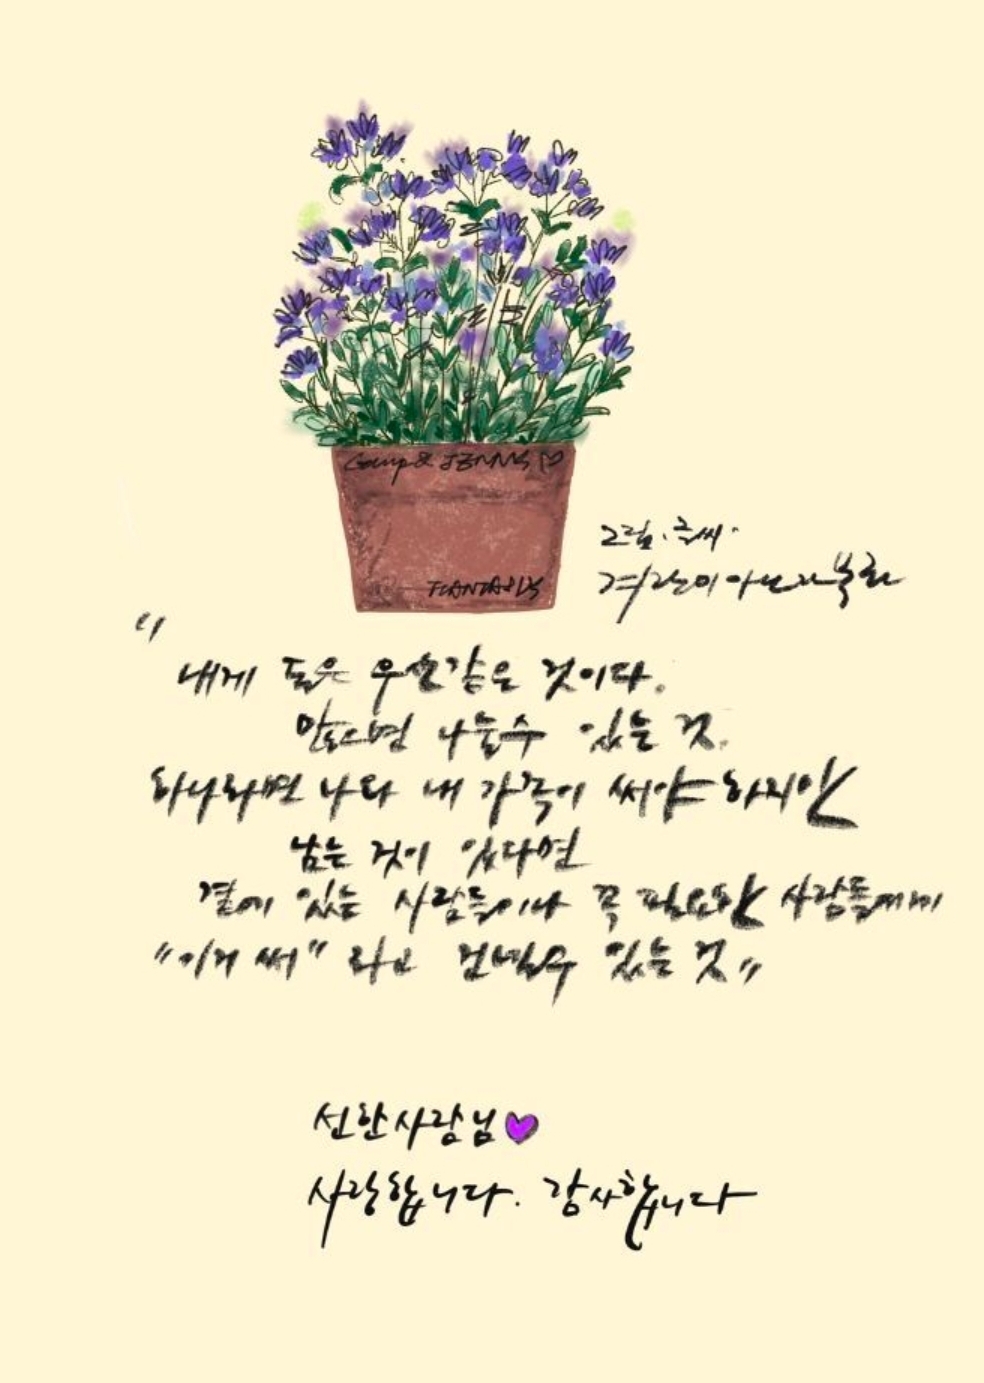 JENNY
FLANTASIX
그림. 글씨.
"
내게 돈은 우산같은 것이다.
많으면 나눌수 있는 것.
하나라면 나와 내 가족이 써야 하지만
남는 것이 있다면
곁에 있는 사람들이나 꼭 필요한 사람들에게
"이거 써" 라고 건넬수 있는 것"
선한사람님
사랑합니다. 감사합니다